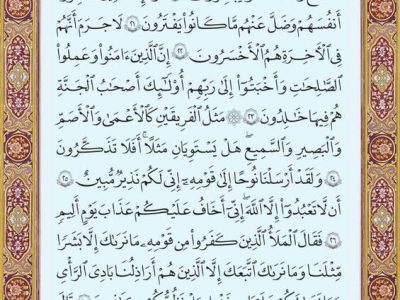 أَنفُسَهُمْ وَضَلَّ عَنْهُم مَّا كَانُوا۟ يَفْتَرُونَ ٢١ لَا جَرَمَ أَنَّهُمْ
فِى ٱلْأَخِرَةِ هُمُ ٱلْأَخْسَرُونَ ٢٢ إِنَّ ٱلَّذِينَ ءَامَنُوا۟ وَعَمِلُوا۟
ٱلصَّٰلِحَٰتِ وَأَخْبَتُوٓا۟ إِلَىٰ رَبِّهِمْ أُو۟لَٰٓئِكَ أَصْحَٰبُ ٱلْجَنَّةِ
هُمْ فِيهَا خَٰلِدُونَ ٢٣ ۞ مَثَلُ ٱلْفَرِيقَيْنِ كَٱلْأَعْمَىٰ وَٱلْأَصَمِّ
وَٱلْبَصِيرِ وَٱلسَّمِيعِ ۚ هَلْ يَسْتَوِيَانِ مَثَلًا ۚ أَفَلَا تَذَكَّرُونَ
٢٤ وَلَقَدْ أَرْسَلْنَا نُوحًا إِلَىٰ قَوْمِهِۦٓ إِنِّى لَكُمْ نَذِيرٌ مُّبِينٌ ٢٥
أَن لَّا تَعْبُدُوٓا۟ إِلَّا ٱللَّهَ ۖ إِنِّىٓ أَخَافُ عَلَيْكُمْ عَذَابَ يَوْمٍ أَلِيمٍ
٢٦ فَقَالَ ٱلْمَلَأُ ٱلَّذِينَ كَفَرُوا۟ مِن قَوْمِهِۦ مَا نَرَىٰكَ إِلَّا بَشَرًا
مِّثْلَنَا وَمَا نَرَىٰكَ ٱتَّبَعَكَ إِلَّا ٱلَّذِينَ هُمْ أَرَاذِلُنَا بَادِىَ ٱلرَّأْىِ